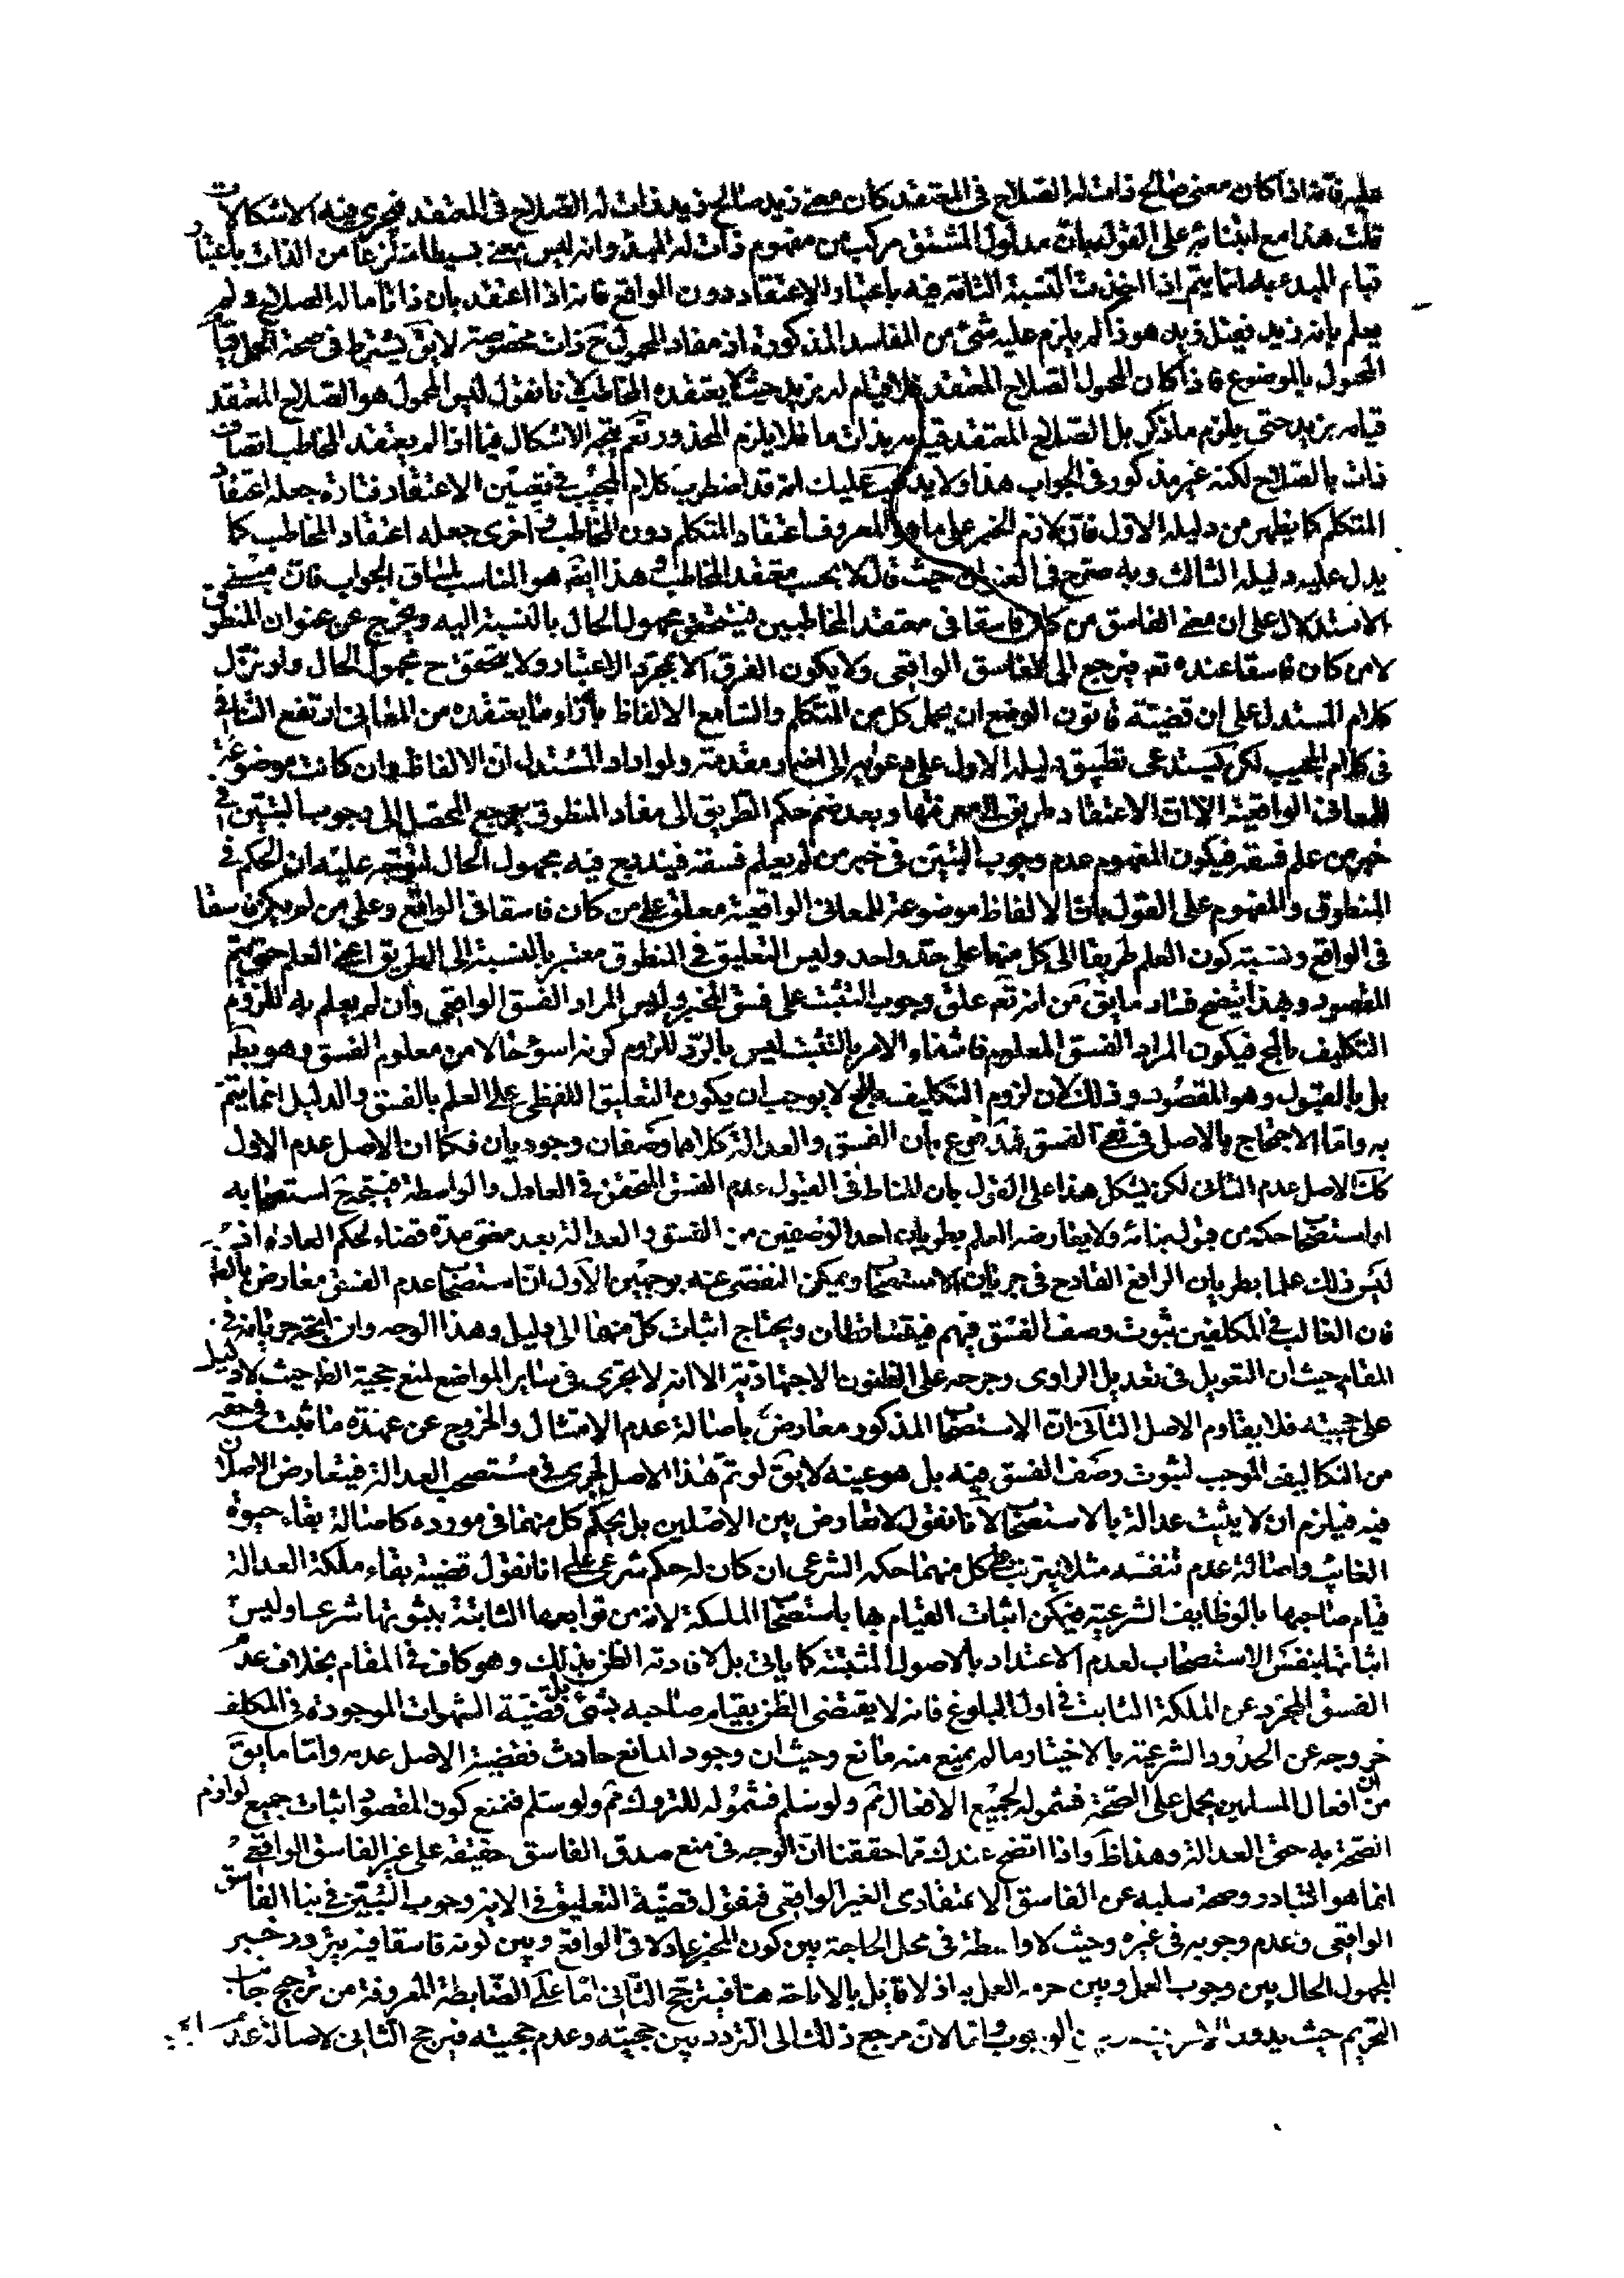 عليه فانه اذا كان معنى صالح ذات له الصلاح فى المعتقد كان معنى زيد صالح زيد ذات له الصلاح فى المعتقد فيجرى فيه الاشكالات
قلت هذا مع ابتنائه على القول بان مدلول المشتق مركب من مفهوم ذات له المبدء وانه ليس معنى بسيطا منتزعا من الذات باعتبار
قيام المبدء بها انما يتم اذا اخذت النسبة التامة فيه باعتبار الاعتقاد دون الواقع فانه اذا اعتقد بان ذاتا ما له الصلاح ولم
يعلم بانه زيد فقيل زيد هو ذا لم يلزم عليه شئ من المفاسد المذكورة اذ مفاد المحمول ح ذات مخصوصة لا يق يشترط فى صحة الحمل قيام
المحمول بالموضوع فاذا كان المحمول الصلاح المعتقد فلا قيام له بزيد حيث لا يعتقده المخاطب لانا نقول ليس المحمول هو الصلاح المعتقد
قيامه بزيد حتى يلزم ما ذكر بل الصلاح المعتقد قيامه بذات ما فلا يلزم المحذور نعم يتجه الاشكال فيما اذا لم يعتقد المخاطب اتصاف
ذات بالصلاح لكنه غير مذكور فى الجواب هذا ولا يذهب عليك انه قد اضطرب كلام المجيب فى تعيين الاعتقاد فتارة جعله اعتقاد
المتكلم كما يظهر من دليله الاول فان لازم الخبر على ما هو المعروف اعتقاد المتكلم دون المخاطب و اخرى جعله اعتقاد المخاطب كما
يدل عليه دليله الثالث وبه صرح فى العنوان حيث قال لا بحسب معتقد المخاطب و هذا ايضا هو المناسب لمساق الجواب فان مبنى
الاستدلال على ان معنى الفاسق من كان فاسقا فى معتقد المخاطبين فيختفى مجهول الحال بالنسبة اليه ويخرج عن عنوان المنطوق
لا من كان فاسقا عنده تعم فيرجع الى الفاسق الواقعى ولا يكون الفرق الا بمجرد الاعتبار ولا يتحقق ح مجهول الحال ولو نزل
كلام المستدل على ان قضية قانون الوضع ان يحمل كل من المتكلم والسامع الالفاظ بازاء ما يعتقده من المعانى ارتفع التنافى
فى كلام المجيب لكن يستدعى تطبيق دليله الاول على دعواه الى اضمار مقدمة ولو اراد المستدل ان الالفاظ وان كانت موضوعة
للمعانى الواقعية الا ان الاعتقاد طريق الى معرفتها وبعد ضم حكم الطريق الى مفاد المنطوق يرجع المحصل الى وجوب التبين فى
خبر من علم فسقه فيكون المفهوم عدم وجوب التبين فى خبر من لم يعلم فسقه فيندرج فيه مجهول الحال لتوجه عليه ان الحكم فى
المنطوق والمفهوم على القول بان الالفاظ موضوعة للمعانى الواقعية معلق على من كان فاسقا فى الواقع وعلى من لم يكن فاسقا
فى الواقع ونسبة كون العلم طريقا الى كل منهما على حد واحد وليس التعليق فى المنطوق معتبر بالنسبة الى الطريق اعنى العلم حتى يتم
المقصود وبهذا يتضح فساد ما يق من انه تعم علق وجوب التثبت على فسق المخبر وليس المراد الفسق الواقعى وان لم يعلم به للزوم
التكليف بالمح فيكون المراد الفسق المعلوم فانتفاء الامر بالتثبت ليس بالرد للزوم كونه اسوء حالا من معلوم الفسق وهو بط
بل بالقبول وهو المقصود وذلك لان لزوم التكليف بالمح لا يوجب ان يكون التعليق اللفظى على العلم بالفسق والدليل انما يتم
به واما الاحتجاج بالاصل فى نفى الفسق فمدفوع بان الفسق والعدالة كلاهما وصفان وجوديان فكما ان الاصل عدم الاول
كك الاصل عدم الثانى لكن يشكل هذا على القول بان المناط فى القبول عدم الفسق المتحقق فى العادل والواسطة فيتجه ح استصحابه
او استصحاب حكمه من قبول بنائه ولا يعارضه العلم بطريان احد الوصفين من الفسق والعدالة بعد مضى مدة قضاء لحكم العادة اذ
ليس ذلك علما بطريان الرافع القادح فى جريان الاستصحاب ويمكن التفصى عنه بوجهين الاول ان استصحاب عدم الفسق معارض بالظ
فان الغالب فى المكلفين ثبوت وصف الفسق فيهم فيتساقطان ويحتاج اثبات كل منهما الى دليل وهذا الوجه وان اتجه جريانه فى
المقام حيث ان التعويل فى تعديل الراوى وجرحه على الظنون الاجتهادية الا انه لا يجرى فى ساير المواضع لمنع حجية الظ حيث لا دليل
على حجيته فلا يقاوم الاصل الثانى ان الاستصحاب المذكور معارض باصالة عدم الامتثال والخروج عن عهدة ما ثبت فى حقه
من التكاليف الموجب لثبوت وصف الفسق فيه بل هو عينه لا يق لو تم هذا الاصل لجرى فى مستصحب العدالة فيتعارض الاصلان
فيه فيلزم ان لا يثبت عدالة بالاستصحاب لانا نقول لا تعارض بين الاصلين بل يحكم كل منهما فى مورده كاصالة بقاء حيوة
الغائب واصالة عدم تنفسه مثلا يترتب على كل منهما حكمه الشرعى ان كان له حكم شرعى على انا نقول قضية بقاء ملكة العدالة
قيام صاحبها بالوظايف الشرعية فيمكن اثبات القيام بها باستصحاب الملكة لانه من توابعها الثابتة بثبوتها شرعا وليس
اثباتها بنفس الاستصحاب لعدم الاعتداد بالاصول المثبتة كما ياتى بل لافادته الظن بذلك وهو كاف فى المقام بخلاف عدم
الفسق المجرد عن الملكة الثابت فى اول البلوغ فانه لا يقتضى الظن بقيام صاحبه بشئ بل قضية الشهوات الموجودة فى المكلف
خروجه عن الحدود الشرعية بالاختيار ما لم يمنع منه مانع وحيث ان وجود المانع حادث فقضية الاصل عدمه واما ما يق
من ان افعال المسلمين يحمل على الصحة فشموله لجميع الافعال ثم ولو سلم فشموله للتروك ثم ولو سلم فنمنع كون المقصود اثبات جميع لوازم
الصحة به حتى العدالة وهذا ظ واذا اتضح عندك مما حققنا ان الوجه فى منع صدق الفاسق حقيقة على غير الفاسق الواقعى
انما هو التبادر وصحة سلبه عن الفاسق الاعتقادى الغير الواقعى فنقول قضية التعليق فى الاية وجوب التبين فى بناء الفاسق
الواقعى وعدم وجوبه فى غيره وحيث لا واسطة فى محل الحاجة بين كون المخبر عادلا فى الواقع وبين كونه فاسقا فيه يدور خبر
المجهول الحال بين وجوب العمل وبين حرمة العمل به اذ لا قايل بالاباحة هنا فيترجح الثانى اما على الضابطة المعروفة من ترجيح جانب
التحريم حيث يدور الامر بينه وبين الوجوب واما لان مرجع ذلك الى التردد بين حجيته وعدم حجيته فيرجح الثانى لاصالة عدم